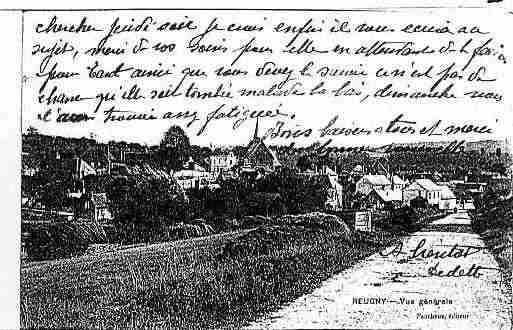 chercher jeudi soir je crois enfin il vous écrira au
sujet, merci de vos soins pour elle en attendant de le faire
pour tant ainsi que vous devez le savoir ce n'est pas de
chance qu'elle soit tombée malade là bas, dimanche nous
l'avons trouvée fatiguée.
Bons baisers à tous et merci
à bientôt
REUGNY — Vue générale